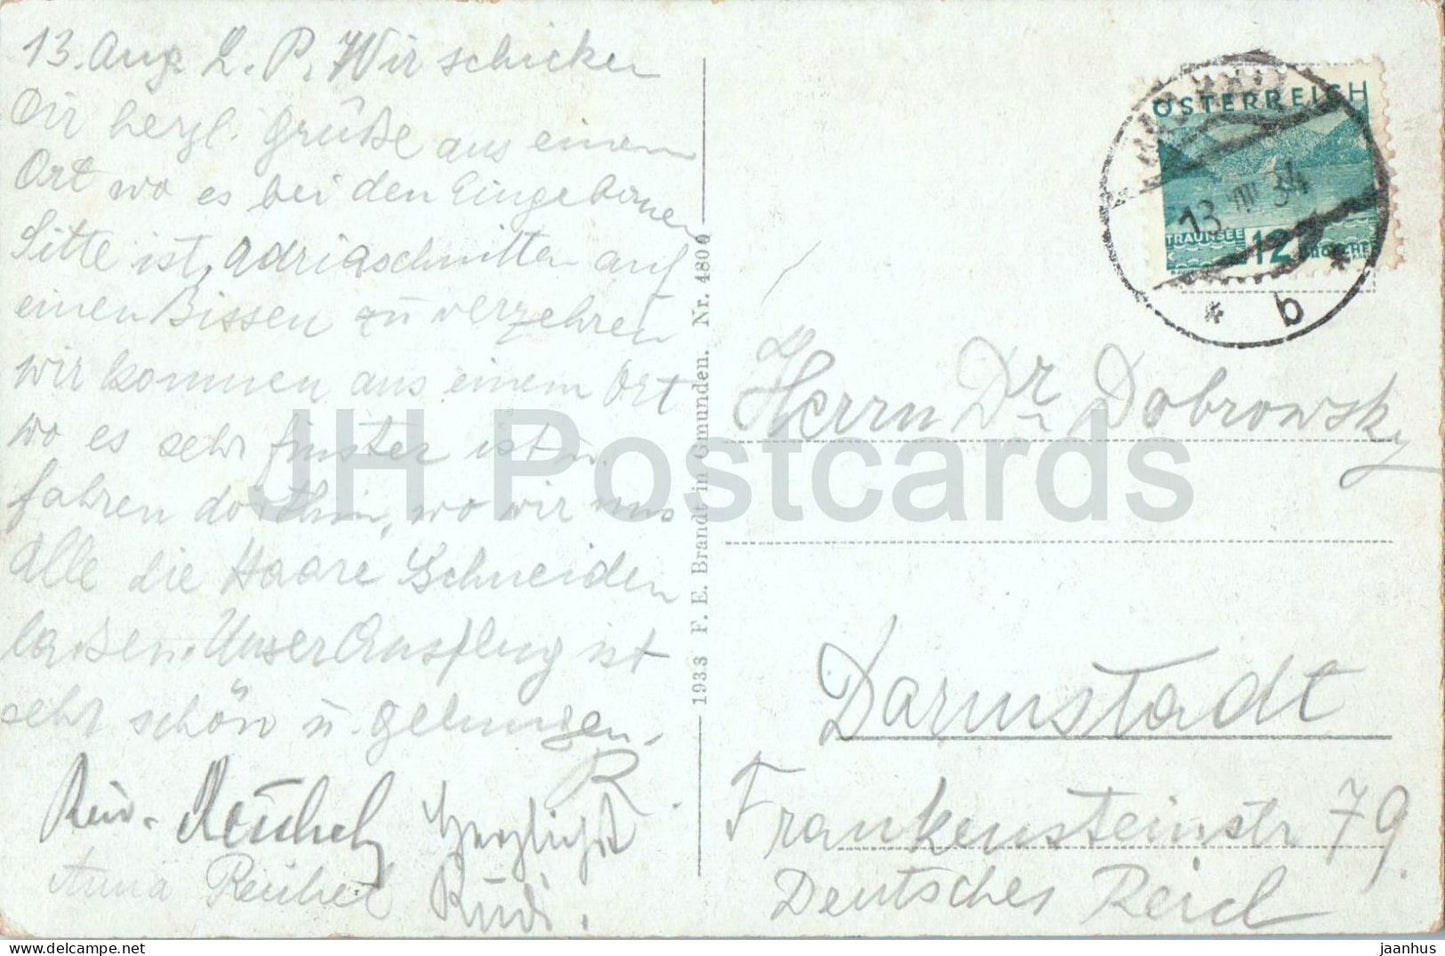 13. Aug. L. P. Wir schicken
Dir herzl. Grüße aus einem
Ort wo es bei den Eingeborenen
Sitte ist, Adriaschnitten auf
einen Bissen zu verzehren
wir kommen aus einem Ort
wo es sehr finster ist u.
fahren dorthin, wo wir uns
Alle die Haare Schneiden
laßen. Unser Ausflug ist
sehr schön u. gelungen.
R
Herzlichst
Anna
Rudi.
1933 F. E. Brandt in Gmunden. Nr. 4800
ÖSTERREICH
TRAUNSEE 12 GROSCHEN
13 VIII 34
* b *
Herrn Dr Dobrowsky
Darmstadt
Frankensteinstr 79.
Deutsches Reich
JH Postcards
jaanhus
https://www.delcampe.net